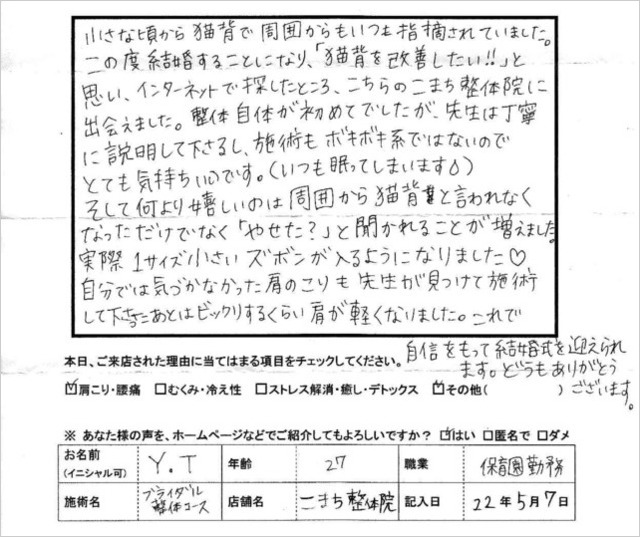 小さな頃から猫背で周囲からもいつも指摘されていました。
この度結婚することになり、「猫背を改善したい!!」と
思い、インターネットで探したところ、こちらのこまち整体院に
出会えました。整体自体が初めてでしたが、先生は丁寧
に説明して下さるし、施術もボキボキ系ではないので
とても気持ちいいです。(いつも眠ってしまいます💧)
そして何より嬉しいのは周囲から猫背と言われなく
なっただけでなく「やせた?」と聞かれることが増えました。
実際1サイズ小さいズボンが入るようになりました♡
自分では気づかなかった肩のこりも先生が見つけて施術
して下さったあとはビックリするくらい肩が軽くなりました。これで
自信をもって結婚式を迎えられ
ます。どうもありがとう
ございます。
本日、ご来店された理由に当てはまる項目をチェックしてください。
☑肩こり・腰痛 □むくみ・冷え性 □ストレス解消・癒し・デトックス ☑その他( )
※ あなた様の声を、ホームページなどでご紹介してもよろしいですか? ☑はい □匿名で □ダメ
お名前 (イニシャル可) Y.T 年齢 27 職業 保育園勤務
施術名 ブライダル整体コース 店舗名 こまち整体院 記入日 22年5月7日